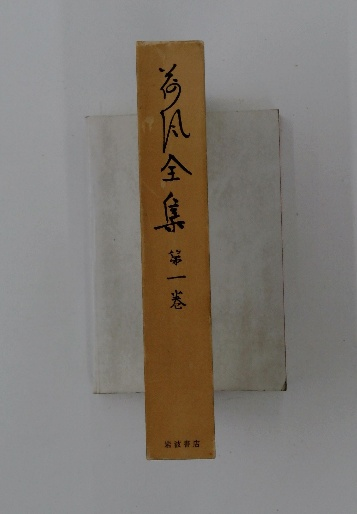 荷風全集
第一巻
岩波書店